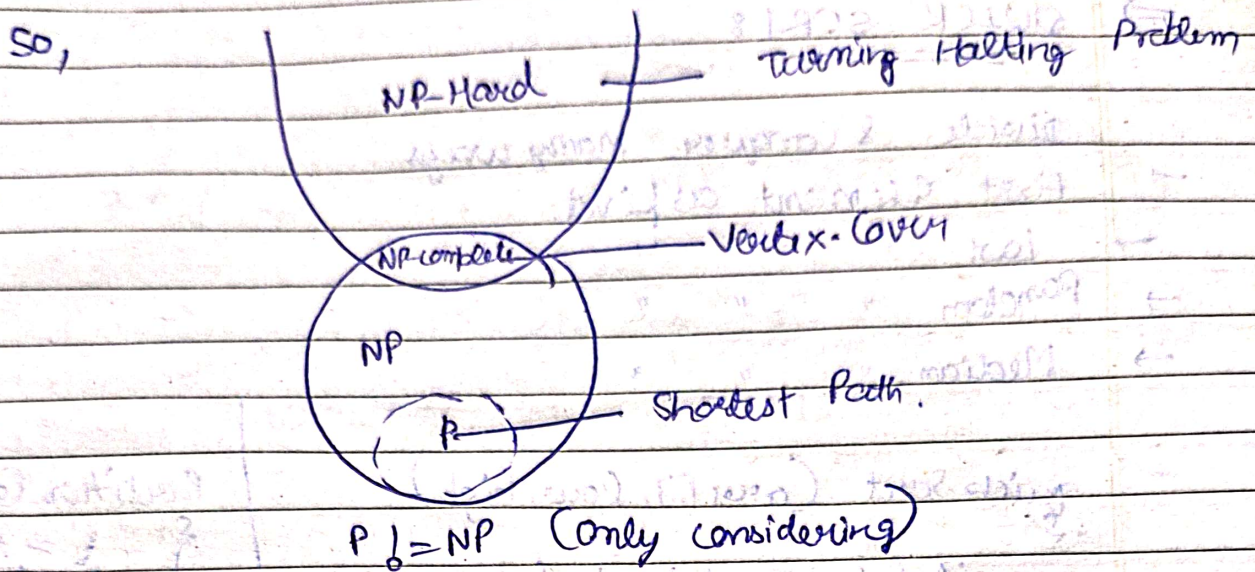 so,
NP-Hard
Turning Halting Problem
NP-complete
Vertex-Cover
NP
Shortest Path.
P
P != NP (only considering)